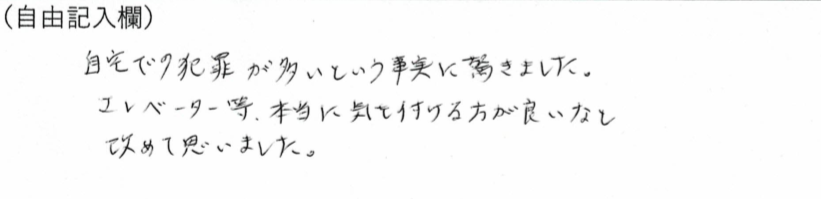 （自由記入欄）
自宅での犯罪が多いという事実に驚きました。
エレベーター等、本当に気を付ける方が良いなと
改めて思いました。